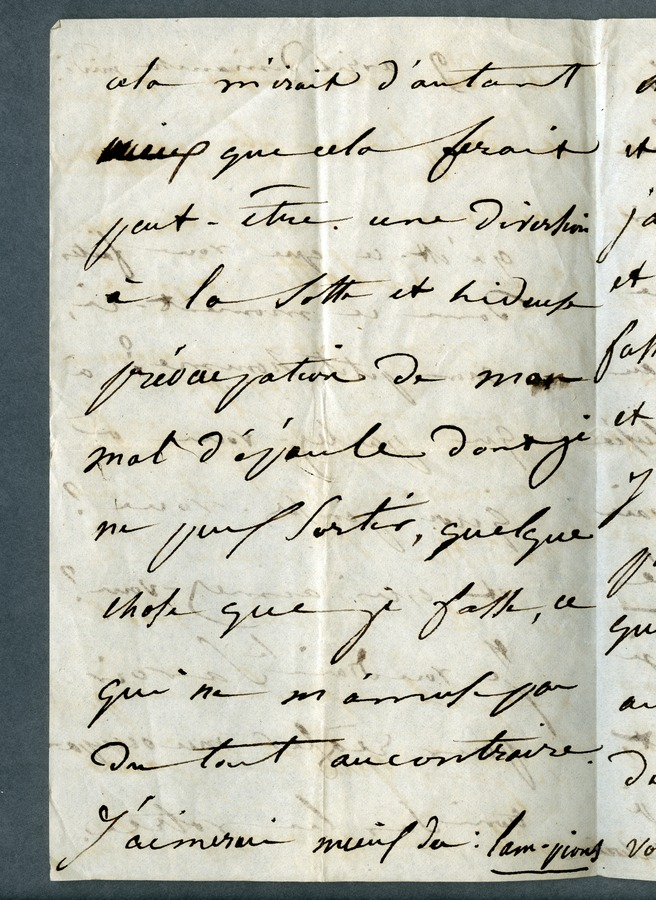 cela m'irait d'autant
mieux que cela ferait
peut-être. une diversion
à la sotte et hideuse
préocupation de mon
mal d'épaule dont je
ne puis sortir, quelque
chose que je fasse, ce
qui ne m'amuse pas
du tout au contraire.
J'aimerais mieux des: lam-pions
et
j'a
et
et
J
qu
au
de
vo